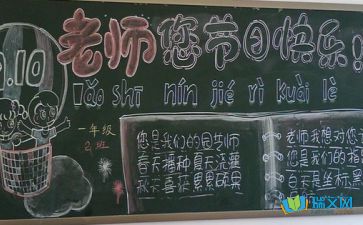 9.10
老师您节日快乐!
lǎo shī nín jié rì kuài lè
一年级
2班
您是我们的园艺师
春天播种夏天浇灌
秋天喜获累累硕果
老师我想对您
您是我们的指
瑞文网